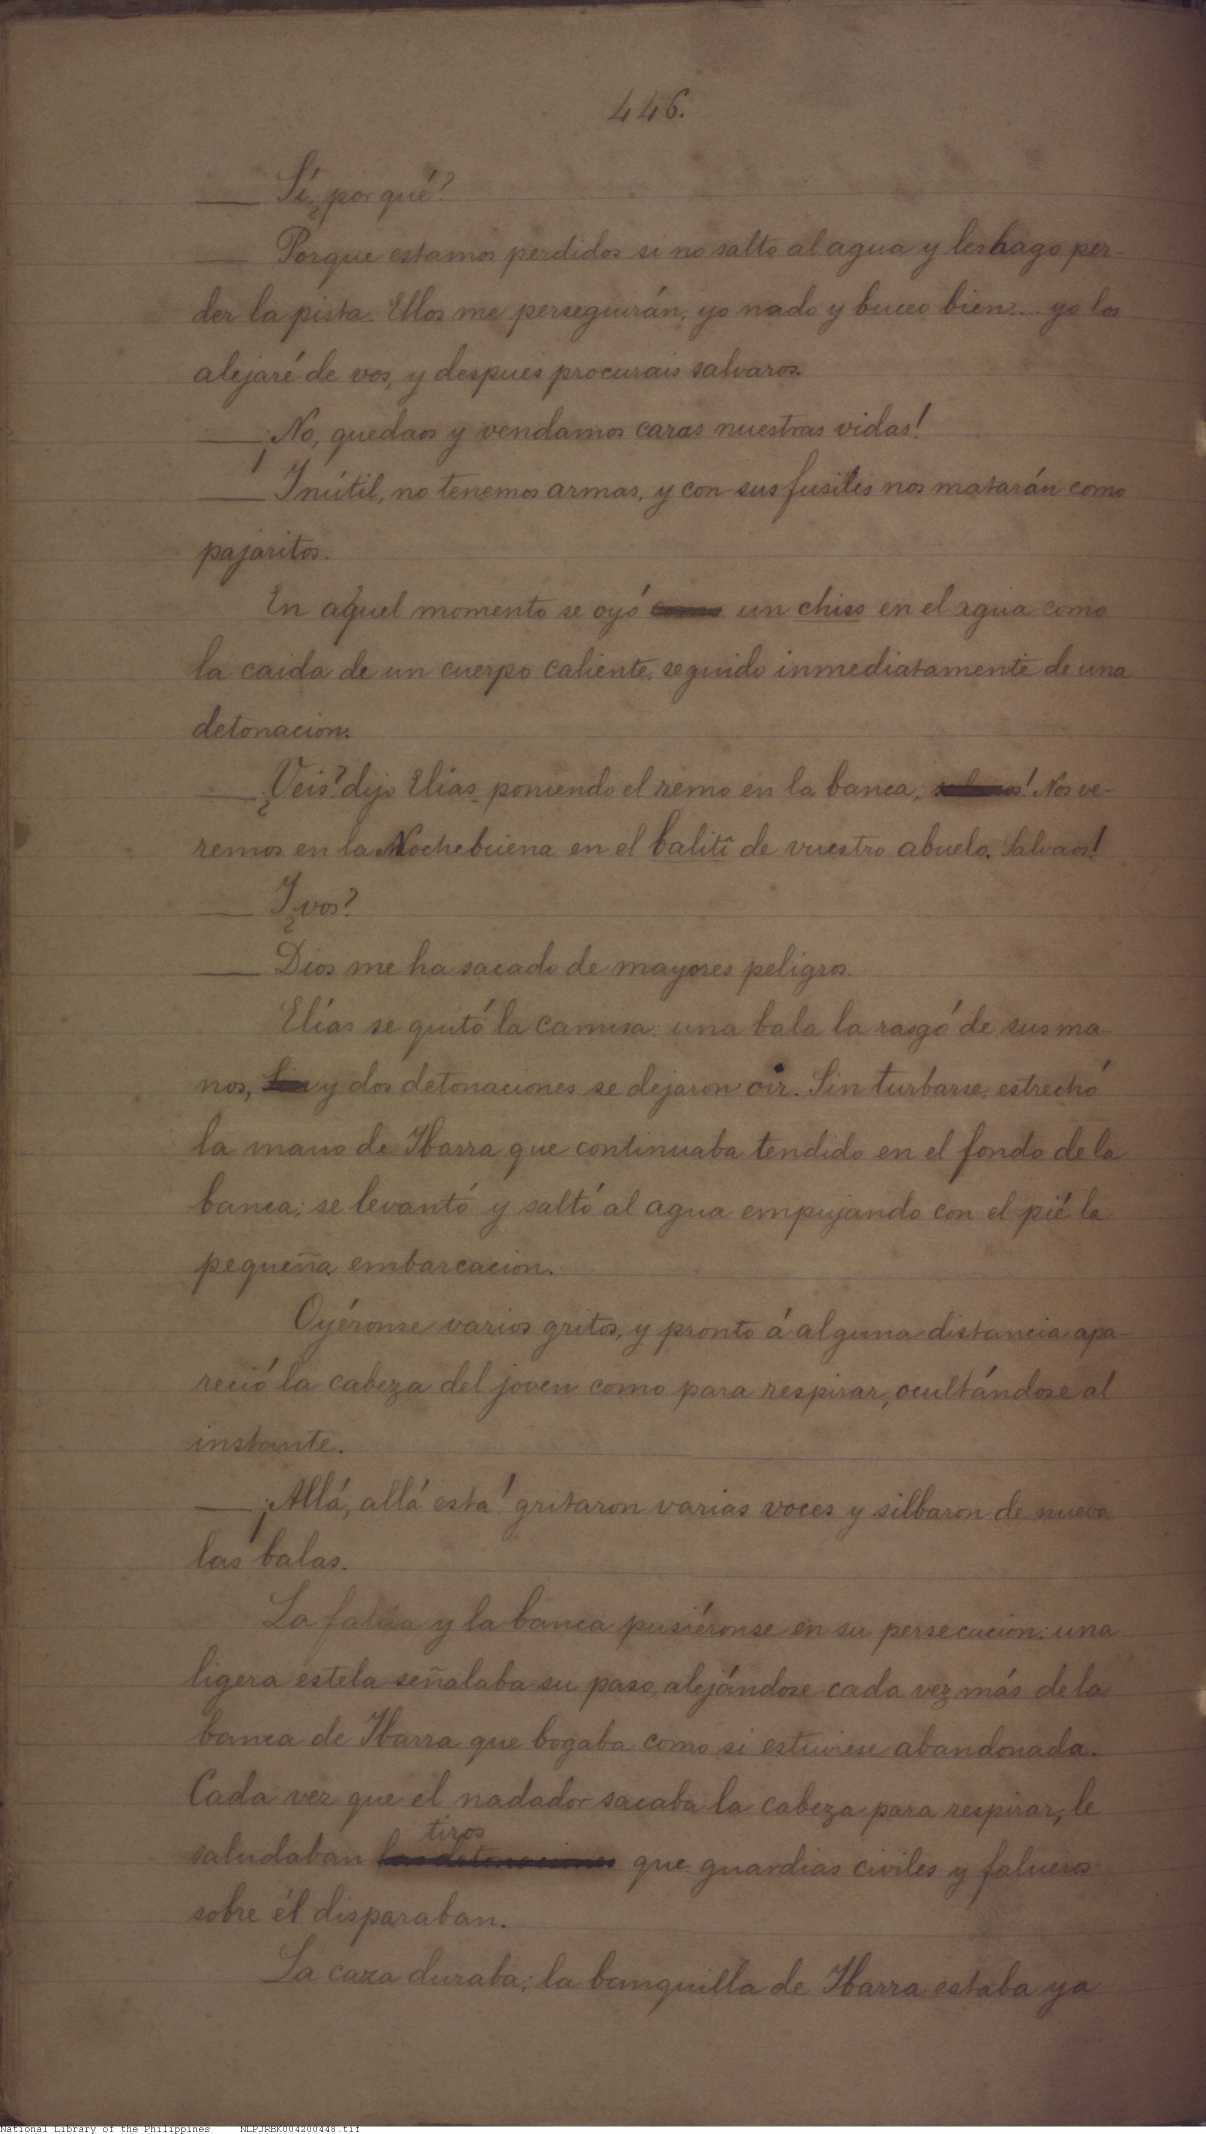 446.
— Sí ¿por qué?
— Porque estamos perdidos si no salto al agua y les hago per-
der la pista. Ellos me perseguirán, yo nado y buceo bien.... yo los
alejaré de vos, y despues procurais salvaros.
— ¡No, quedaos y vendamos caras nuestras vidas!
— Inútil, no tenemos armas, y con sus fusiles nos matarán como
pajaritos.
En aquel momento se oyó como un chiss en el agua como
la caida de un cuerpo caliente, seguido inmediatamente de una
detonacion.
— ¿Veis? dijo Elías poniendo el remo en la banca; ! Nos ve-
remos en la Nochebuena en el balitî de vuestro abuelo. Salvaos!
— Y ¿vos?
— Dios me ha sacado de mayores peligros.
Elías se quitó la camisa: una bala la rasgó de sus ma-
nos, y dos detonaciones se dejaron oir. Sin turbarse, estrechó
la mano de Ibarra que continuaba tendido en el fondo de la
banca; se levantó y saltó al agua empujando con el pié la
pequeña embarcacion.
Oyéronse varios gritos, y pronto á alguna distancia apa-
reció la cabeza del joven como para respirar, ocultándose al
instante.
— ¡Allá, allá está! gritaron varias voces y silbaron de nuevo
las balas.
La falúa y la banca pusiéronse en su persecucion: una
ligera estela señalaba su paso, alejándose cada vez más de la
banca de Ibarra que bogaba como si estuviese abandonada.
Cada vez que el nadador sacaba la cabeza para respirar, le
tiros
saludaban las detonaciones que guardias civiles y falueros
sobre él disparaban.
La caza duraba; la banquilla de Ibarra estaba ya
National Library of the Philippines NLPJRBK004200448.tif